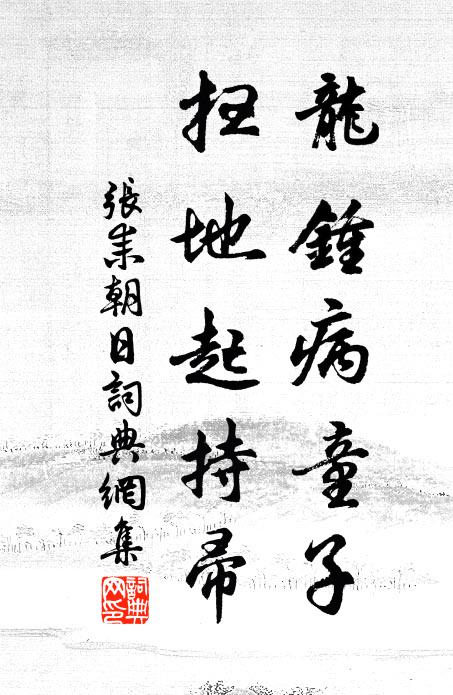 龍鍾病童子
扫地起持帚
張耒朝日詞典網集
詞典网印